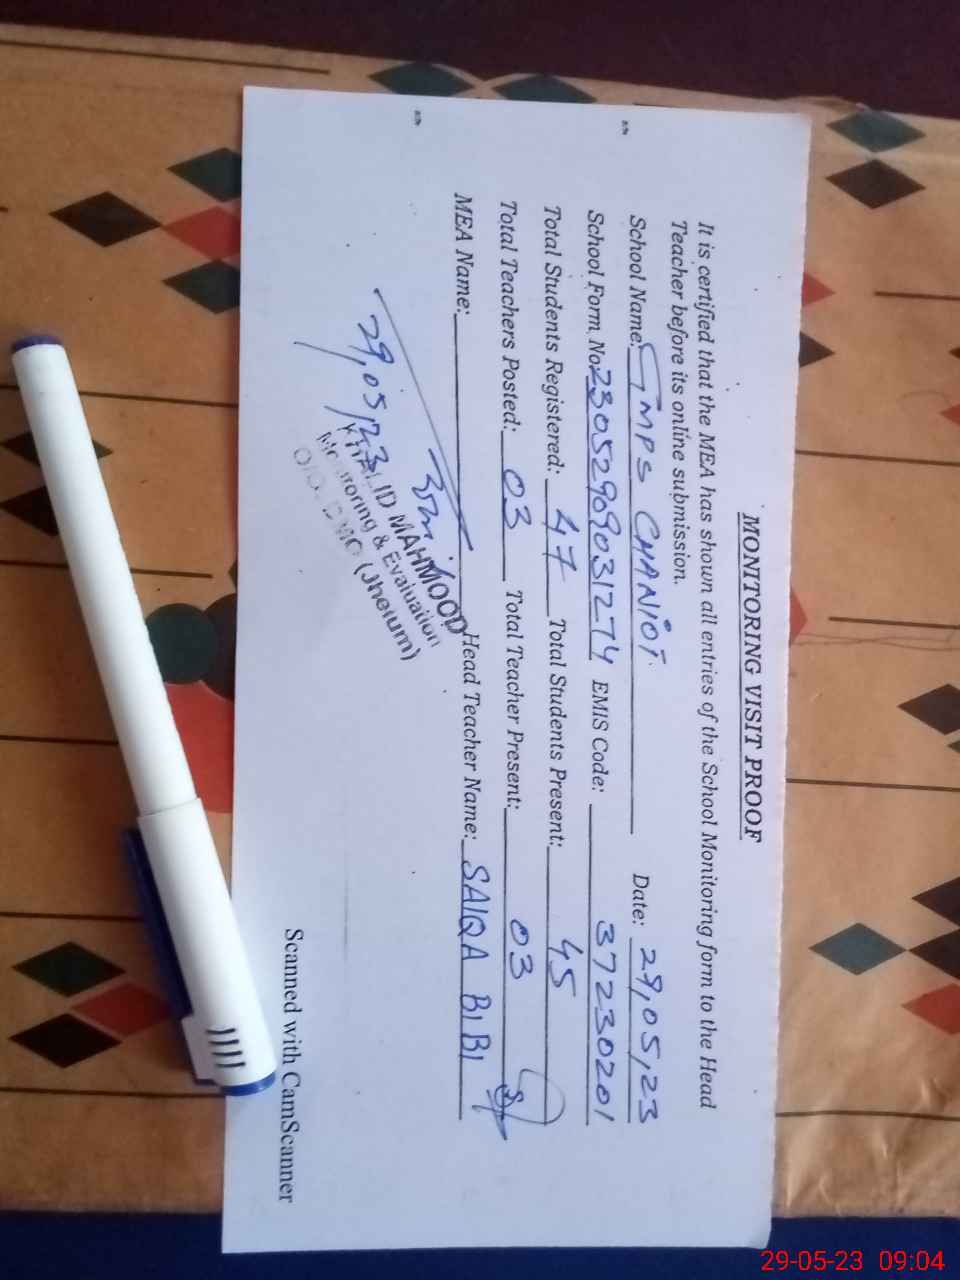 MONITORING VISIT PROOF
It is certified that the MEA has shown all entries of the School Monitoring form to the Head
Teacher before its online submission.
School Name: GMPS CHANIOT Date: 29,05,23
School Form No: 23052909031274 EMIS Code: 37230201
Total Students Registered: 47 Total Students Present: 45
Total Teachers Posted: 03 Total Teacher Present: 03
MEA Name: Head Teacher Name: SAIQA BIBI
29,05,23
KHALID MAHMOOD
Monitoring & Evaluation
O/O. DMO (Jhelum)
Scanned with CamScanner
29-05-23 09:04